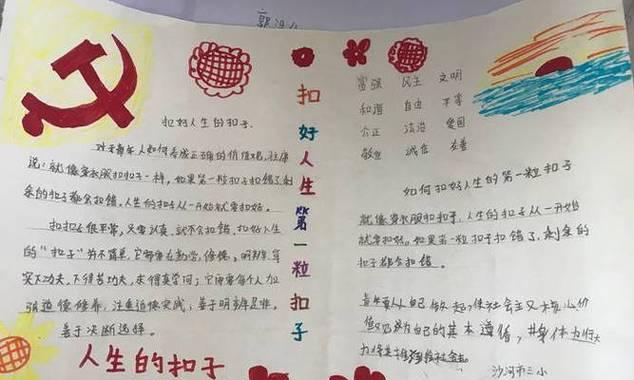 扣好人生的扣子.
对于青年人如何养成正确的价值观,
说:就像穿衣服扣扣子一样,如果第一粒扣子扣错了剩
余的扣子都会扣错,人生的扣子从一开始就要扣好。
扣扣子很平常,只要认真,就不会扣错,扣好人生
的“扣子”并不简单,它需要在勤学、修德、明辨、笃
实下功夫,下得苦功夫,求得真学问;它需要每个人加
强道德修养,注重道德实践,善于明辨是非,
善于决断选择。
人生的扣子
扣好人生第一粒扣子
富强 民主 文明
和谐 自由 平等
公正 法治 爱国
敬业 诚信 友善
如何扣好人生的第一粒扣子
就像穿衣服扣扣子,人生的扣子从一开始
就要扣好。如果第一粒扣子扣错了,剩余的
扣子都会扣错。
要从自己做起,使社会主义核心价
值观成为自己的基本遵循,并身体力行大
力将其推广到全社会去
沙河市三小